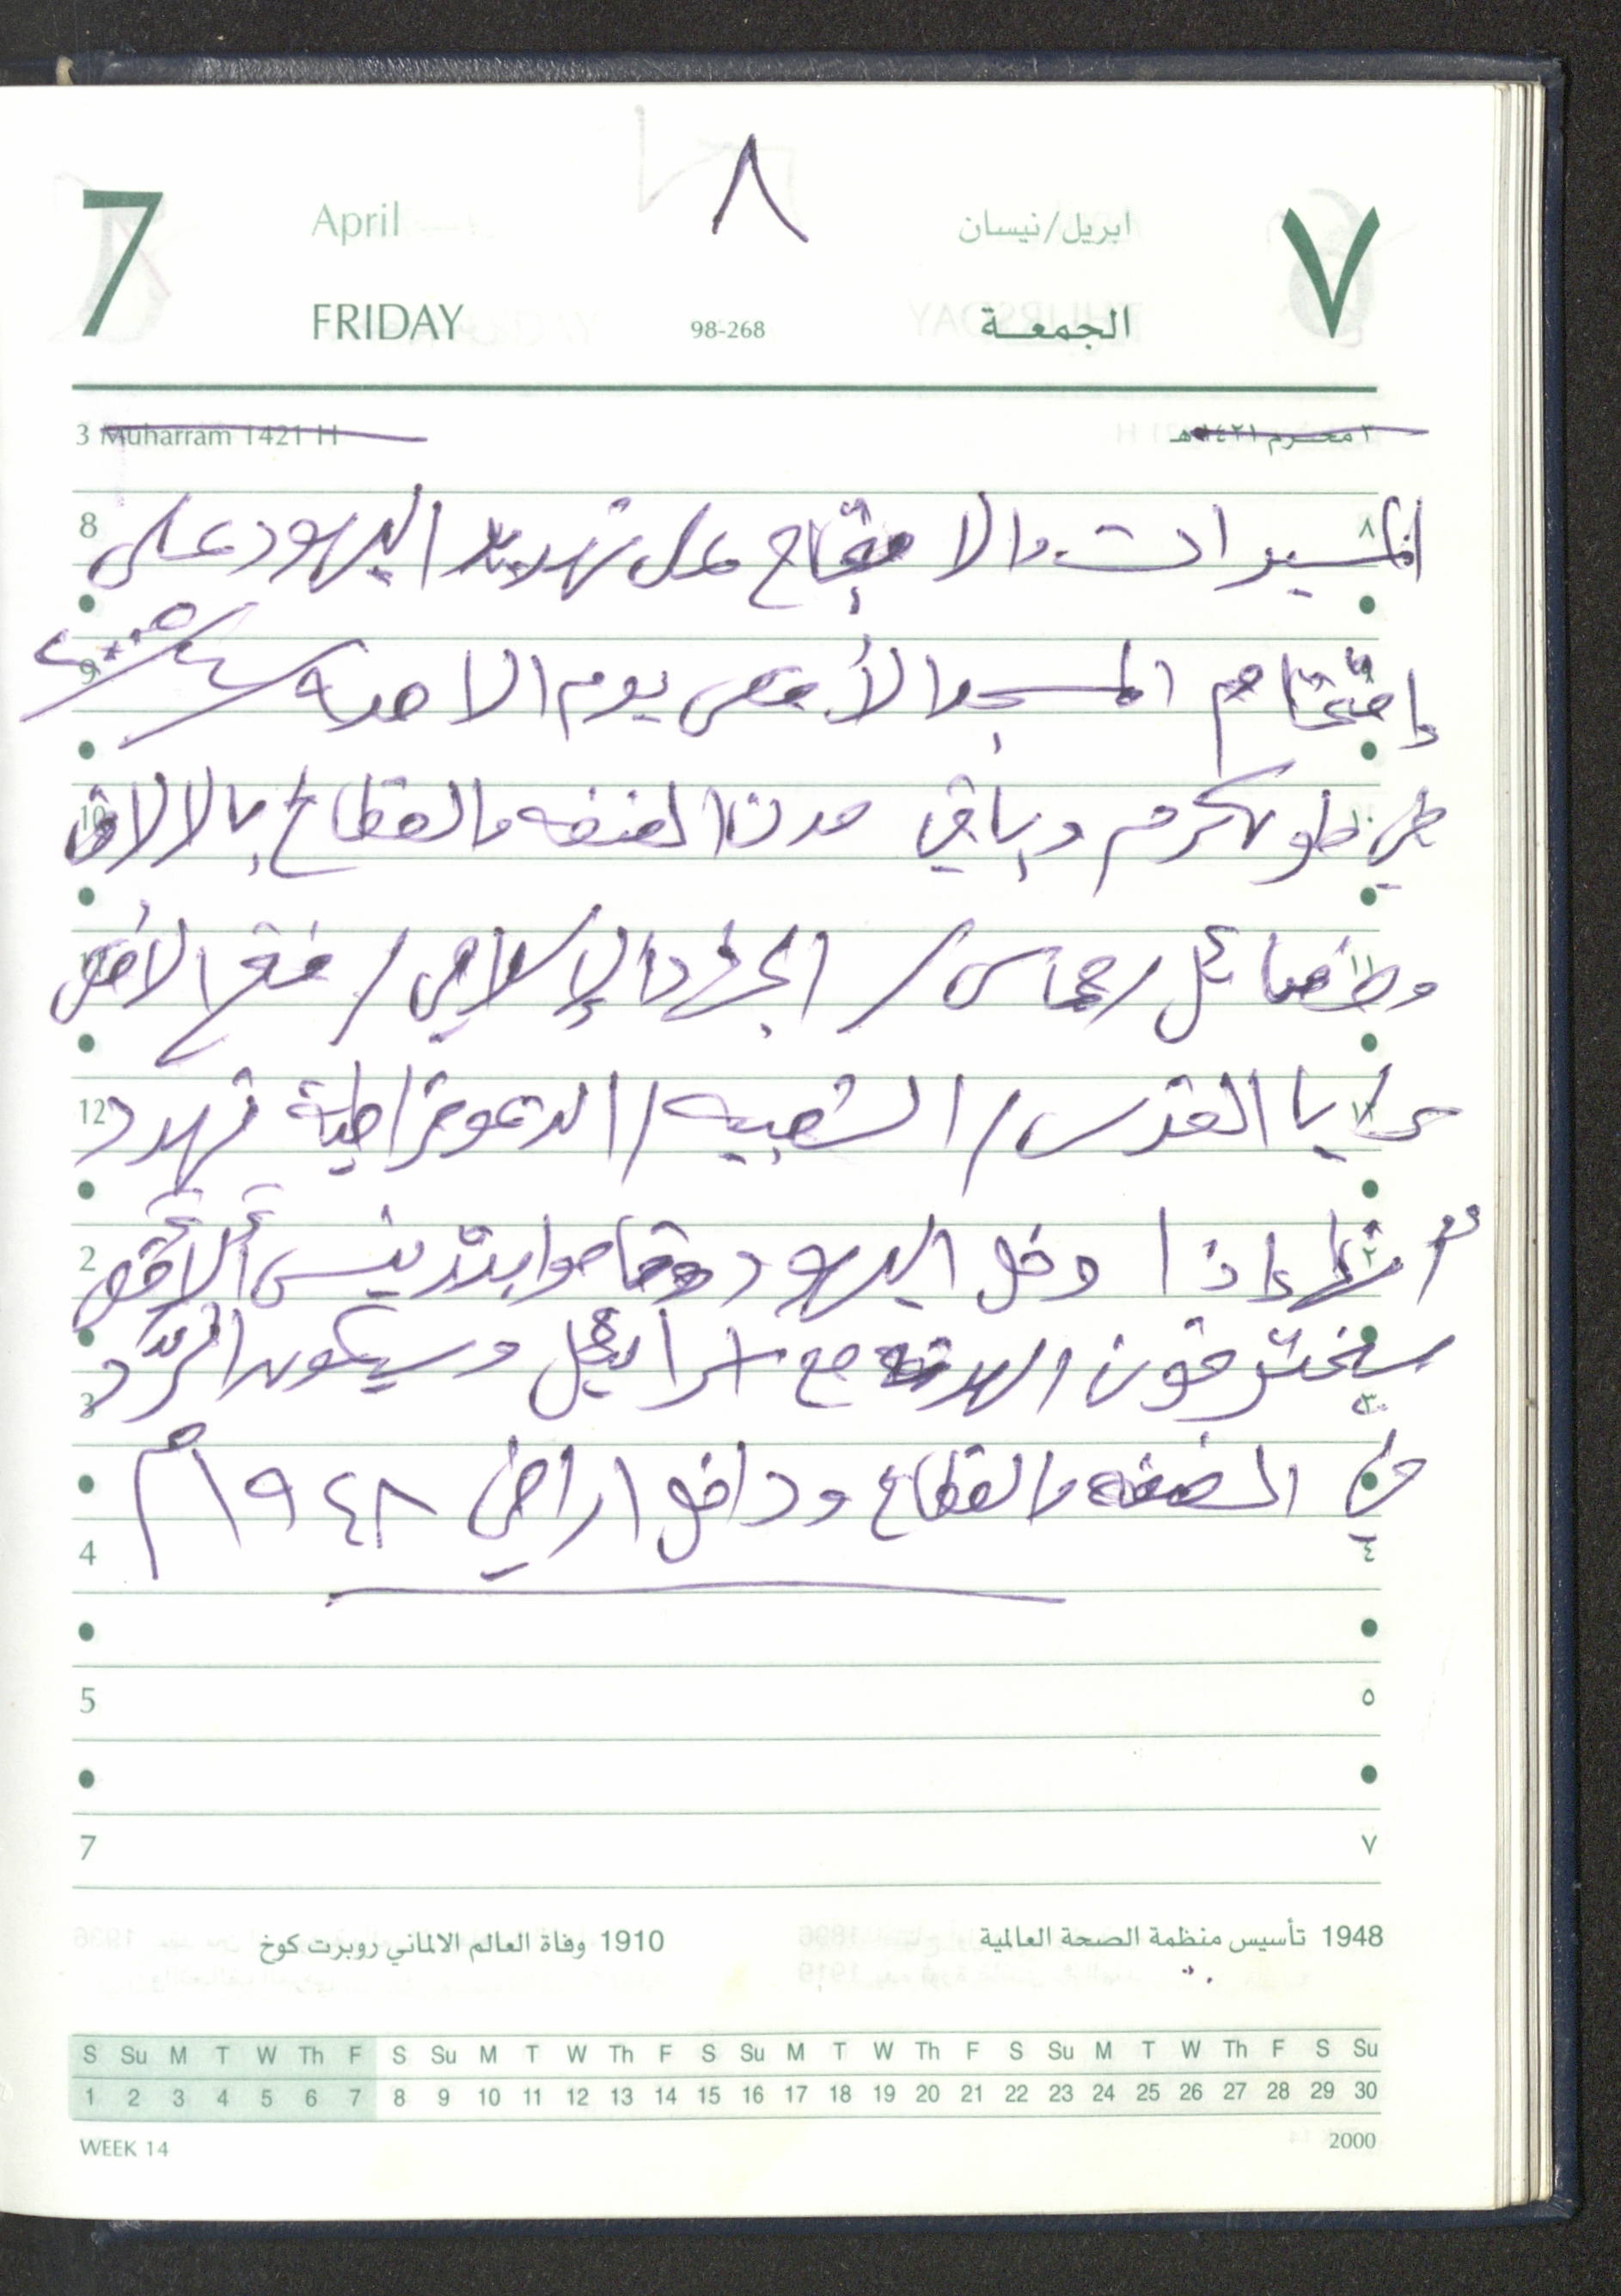 ٨
7 April ابريل/نيسان ٧
FRIDAY 98-268 الجمعـة
3 Muharram 1421 H ٣ محـرم ١٤٢١هـ
المسيرات والاحتجاج على تهديد اليهود على
إقتحام المسجد الأقصى يوم الاحد ٤/ ٢٠٠٥
في طولكرم وباقي مدن الضفه والقطاع بالالاف
وفصائل / حماس / الجهاد الإسلامي / فتح الأقصى
سرايا القدس / الشعبيه / الديموقراطية تهدد
أنها إذا دخل اليهود وقاموا بتدنيس الأقصى
سيخترقون الهدنه مع اسرائيل وسيكون الرّد
في الضفه والقطاع وداخل اراضي ١٩٤٨م
8 ٨
9
10
11
12 ١٢
2 ٢
3 ٣
4 ٤
5 ٥
7 ٧
1948 تأسيس منظمة الصحة العالمية 1910 وفاة العالم الالماني روبرت كوخ
S Su M T W Th F S Su M T W Th F S Su M T W Th F S Su M T W Th F S Su
1 2 3 4 5 6 7 8 9 10 11 12 13 14 15 16 17 18 19 20 21 22 23 24 25 26 27 28 29 30
WEEK 14 2000